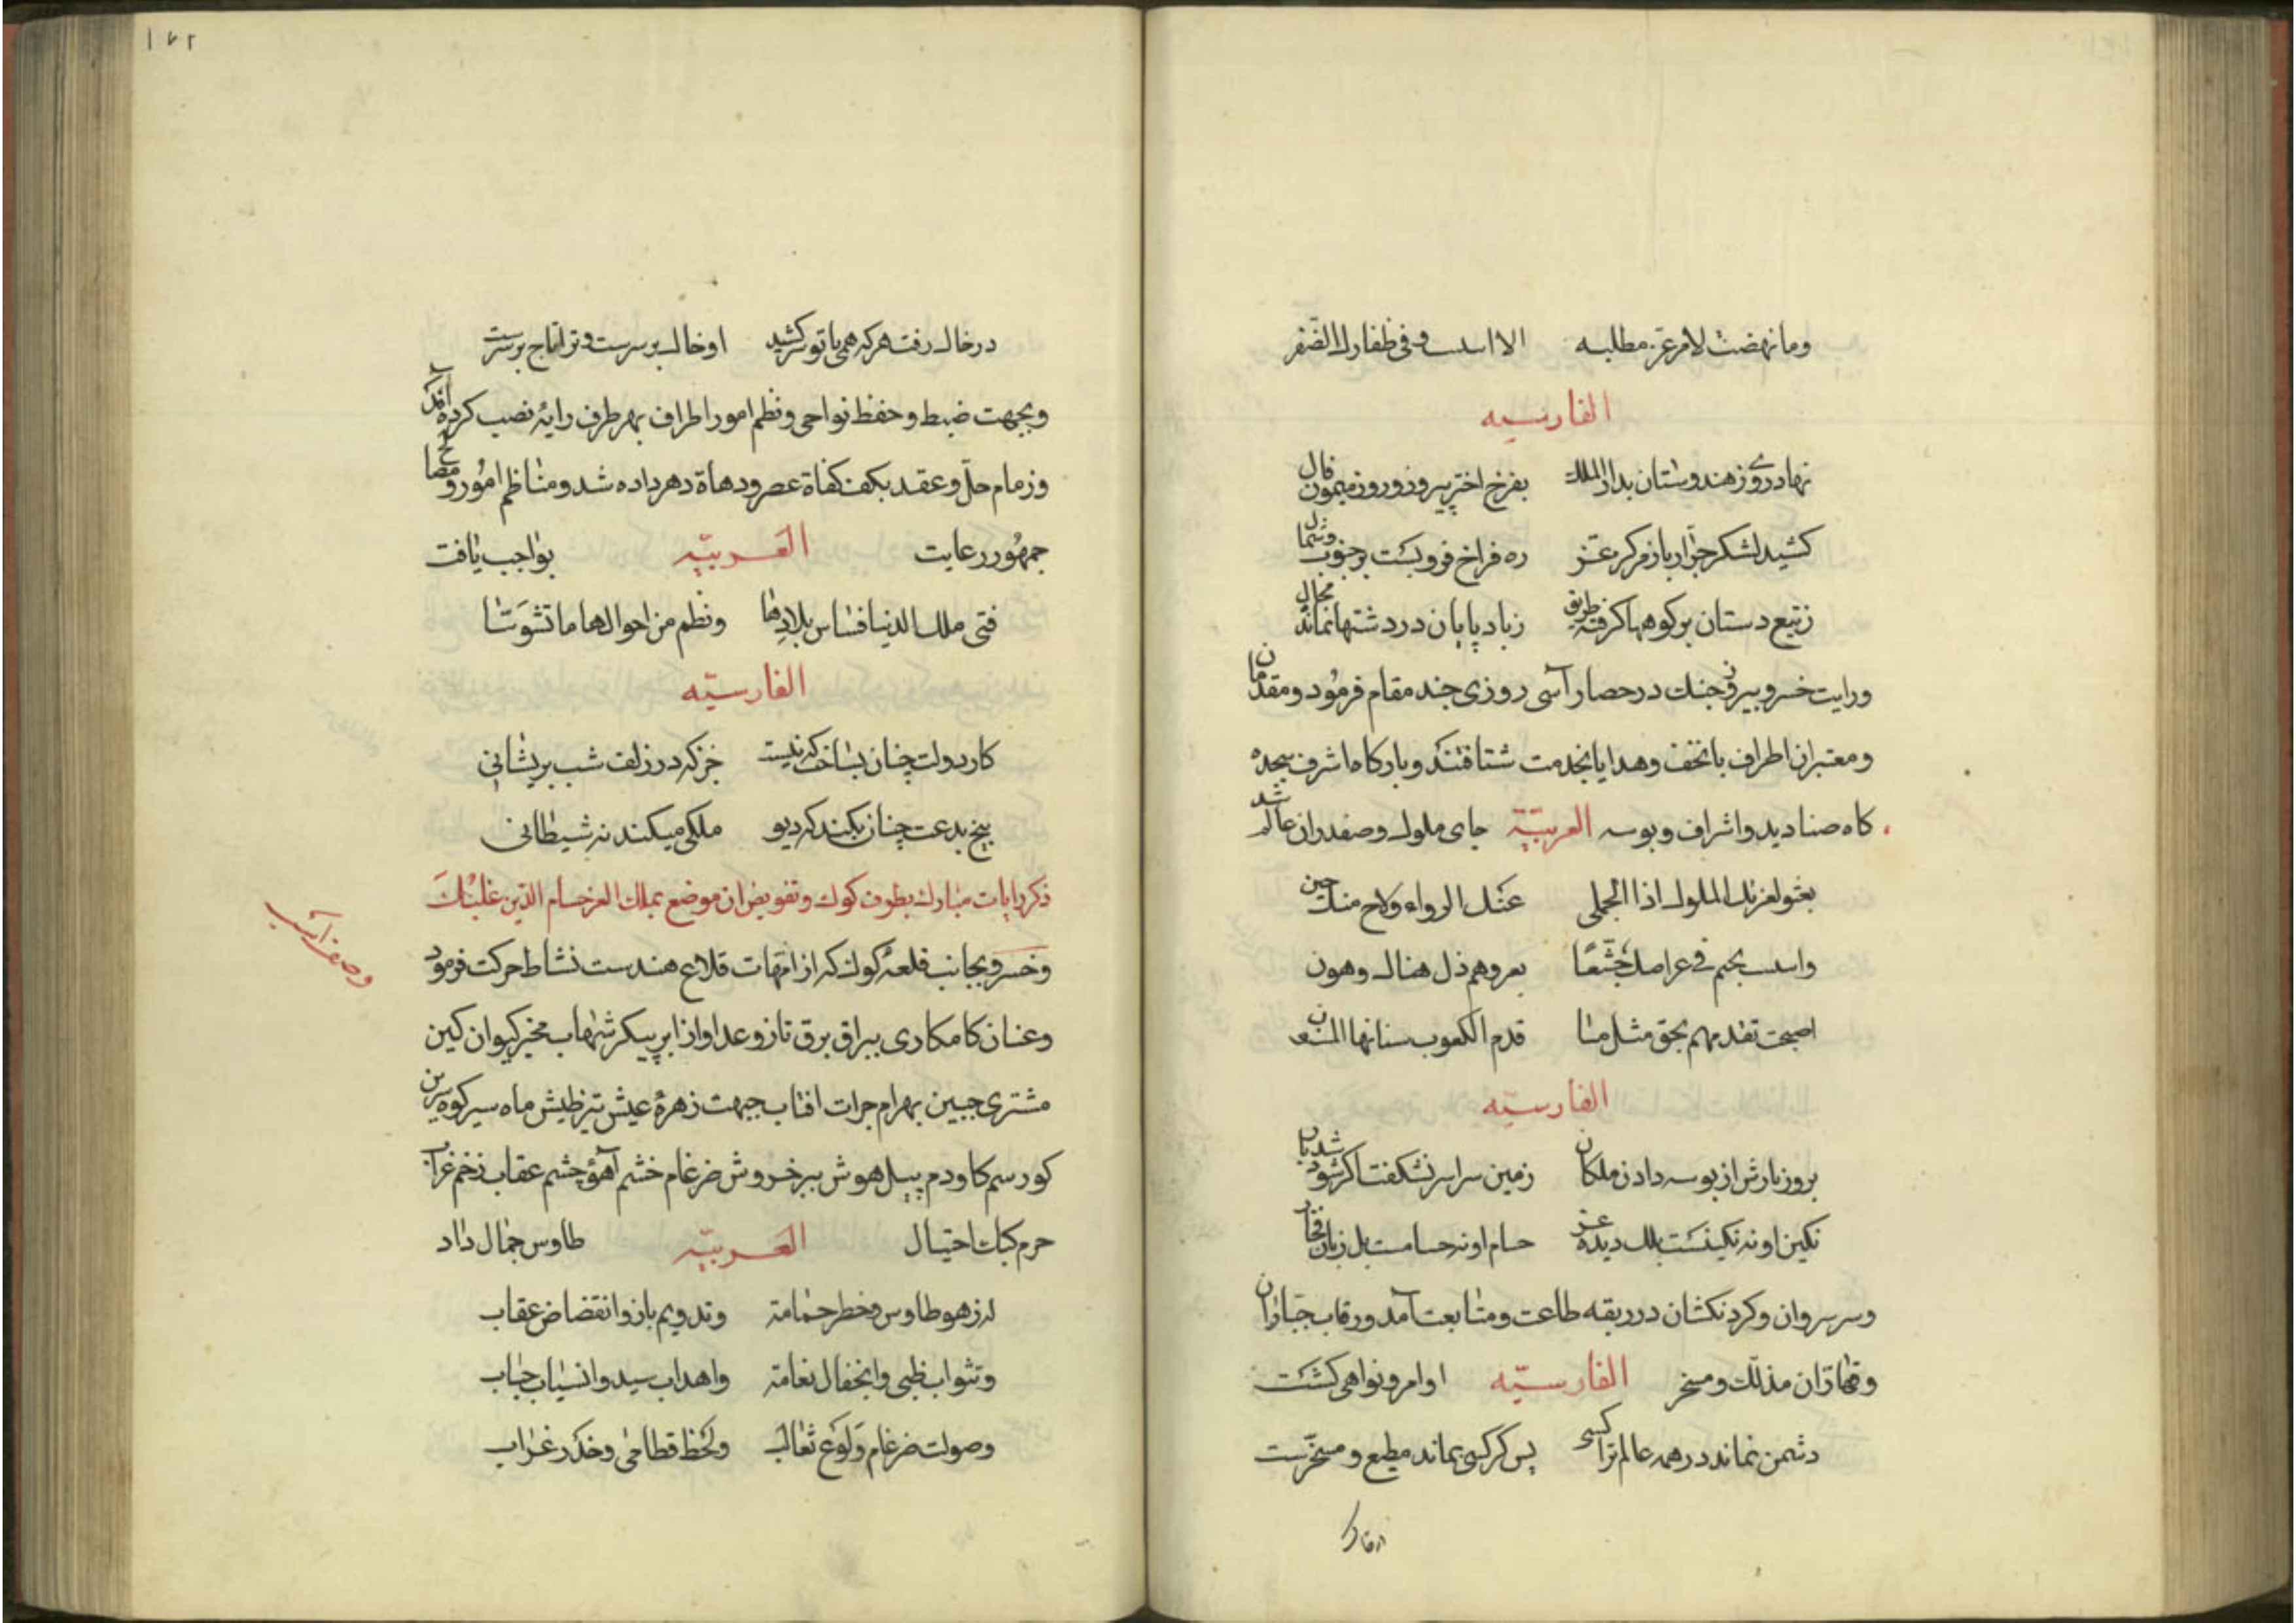 وما نهضت لامر عز مطلبه الا و فی ظفارك الظفر
الفارسیه
نهاد روی ز هندوستان بدار الملك بفرخ اختر پیروز و روز میمون فال
کشید لشکر جرار باز مرکز عز ره فراخ فرو بست بر جنوب و شمال
زتیغ دستان بر کوهها گرفته طریق زباد پایان در دشتها نمانده مجال
ورایت خسرو پیروز جنك در حصار آسی روزی چند مقام فرمود و مقدمان
ومعتبران اطراف با تحف وهدایا بخدمت شتافتند وبارکاه اشرف سجده
کاه صنادید واشراف وبوسه العربیّة جای ملوك وصفدران عالم شد
الملوك اذا انجلی عنك الرواء ولاح منك جبین
فی عراصك خشعا وهم ذل هناك وهون
اصبحت تقدمهم بحق مثل ما قدم الکعوب سنانها المسنون
الفارسیّه
بروز بارش از بوسه دادن ملکان زمین سراسر نشکفت اکر شود شد یاب
نکین او نه نکینست بلك دیده عز حسام او نه حسامست بل زبان فخار
وسر سروران وکردنکشان در ربقه طاعت ومتابعت آمد ورقاب جباران
وقهاران مذلّل ومسخر الفارسیّه اوامر ونواهی کشت
دشمن نماند در همه عالم ترا کسی پس کر کسی بماند مطیع و مسخرست
۱۷۲
در خاك رفت هر که همی با تو سر کشید او خاك بر سرست و ترا تاج بر سرست
وبجهت ضبط وحفظ نواحی ونظم امور اطراف بهر طرف رایهٔ نصب کرده آند
وزمام حلّ وعقد بکف کفاة عصر ودهاة دهر داده شد ومناظم امور ومصالح
جمهور رعایت العربیّه بواجب یافت
فتی ملك الدنیا فساس بلادها ونظم من احوالها ما تشوشا
الفارسیّه
کار دولت چنان بساخت که نیست جز که در زلف شب پریشانی
بیخ بدعت چنان بکند که دیو ملکی میکند نه شیطانی
ذکر رایات مبارك بطرف کوك وتفویض ان موضع بملك العز حسام الدین غلبك
وخسرو بجانب قلعهٔ کوك که از امّهات قلاع هندست نشاط حرکت فرمود
وصف اسب
وعنان کامکاری ببراق برق تاز وعد اواز ابر پیکر شهاب مخبر کیوان کین
مشتری جبین بهرام جرات افتاب جبهت زهرهٔ عیش تیز طیش ماه سیر کوه سرین
کور سم کاو دم پیل هوش ببر خروش ضرغام خشم آهو چشم عقاب زخم غراب
حزم کبك اختیال العربیّه طاوس جمال داد
له زهو طاوس وخطر حمامة وتدویم باز وانقضاض عقاب
وتثواب ظبی وانجفال نعامة واهداب سید وانسیاب حباب
وصولت ضرغام وَلوع ثعالب ولحظ قطامی وحذر غراب